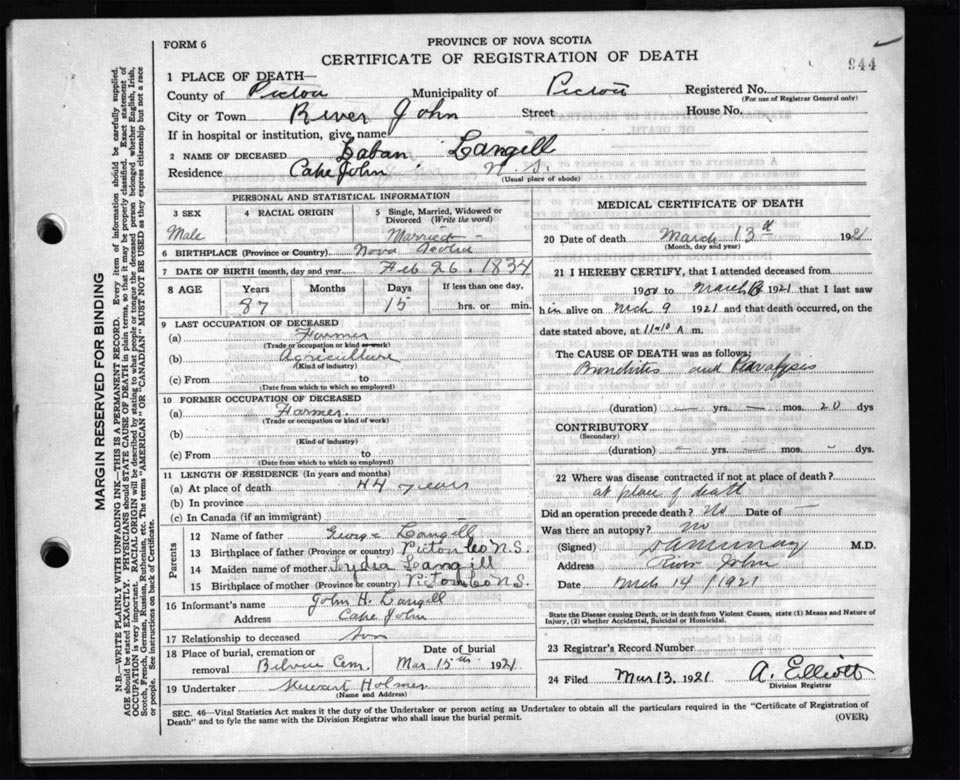 FORM 6
PROVINCE OF NOVA SCOTIA
CERTIFICATE OF REGISTRATION OF DEATH
944
1 PLACE OF DEATH—
County of Pictou Municipality of Pictou Registered No.
(For use of Registrar General only)
City or Town River John Street House No.
If in hospital or institution, give name
2 NAME OF DECEASED Laban Langill
Residence Cape John N. S.
(Usual place of abode)
PERSONAL AND STATISTICAL INFORMATION
3 SEX 4 RACIAL ORIGIN 5 Single, Married, Widowed or Divorced (Write the word)
Male Married
6 BIRTHPLACE (Province or Country) Nova Scotia
7 DATE OF BIRTH (month, day and year) Feb 26. 1834
8 AGE Years Months Days If less than one day,
87 15 hrs. or min.
9 LAST OCCUPATION OF DECEASED
(a) Farmer
(Trade or occupation or kind of work)
(b) Agriculture
(Kind of industry)
(c) From to
(Date from which to which so employed)
10 FORMER OCCUPATION OF DECEASED
(a) Farmer.
(Trade or occupation or kind of work)
(b)
(Kind of industry)
(c) From to
(Date from which to which so employed)
11 LENGTH OF RESIDENCE (In years and months)
(a) At place of death 44 years
(b) In province
(c) In Canada (if an immigrant)
Parents
12 Name of father George Langill
13 Birthplace of father (Province or country) Pictou Co N.S.
14 Maiden name of mother Lydia Langill
15 Birthplace of mother (Province or country) Pictou Co N.S.
16 Informant's name John H. Langill
Address Cape John
17 Relationship to deceased Son
18 Place of burial, cremation or removal Date of burial
Cem. Mar. 15th 1921
19 Undertaker Stewart Holmes
(Name and Address)
MEDICAL CERTIFICATE OF DEATH
20 Date of death March 13th 1921
(Month, day and year)
21 I HEREBY CERTIFY, that I attended deceased from
to March 13 1921 that I last saw
him alive on Mch 9 1921 and that death occurred, on the
date stated above, at 11-10 A m.
The CAUSE OF DEATH was as follows:
Bronchitis and Paralysis
(duration) — yrs. — mos. 20 dys
CONTRIBUTORY
(Secondary)
(duration) — yrs. — mos. - dys.
22 Where was disease contracted if not at place of death?
at place of death
Did an operation precede death? No Date of —
Was there an autopsy? No
(Signed) M.D.
Address River John
Date Mch 14 / 1921
State the Disease causing Death, or in death from Violent Causes, state (1) Means and Nature of
Injury, (2) whether Accidental, Suicidal or Homicidal.
23 Registrar's Record Number
24 Filed Mar 13, 1921 A. Elliott
Division Registrar
SEC. 46—Vital Statistics Act makes it the duty of the Undertaker or person acting as Undertaker to obtain all the particulars required in the "Certificate of Registration of
Death" and to fyle the same with the Division Registrar who shall issue the burial permit.
(OVER)
MARGIN RESERVED FOR BINDING
N.B.—WRITE PLAINLY WITH UNFADING INK—THIS IS A PERMANENT RECORD. Every item of information should be carefully supplied.
AGE should be stated EXACTLY. PHYSICIANS should STATE CAUSE OF DEATH in plain terms, so that it may be properly classified. Exact statement of
OCCUPATION is very important. RACIAL ORIGIN will be described by stating to what people or tongue the deceased person belonged whether English, Irish,
Scotch, French, German, Russian, Ruthenian, etc. The terms "AMERICAN" OR "CANADIAN" MUST NOT BE USED as they express citizenship but not a race
or people. See instructions on back of Certificate.